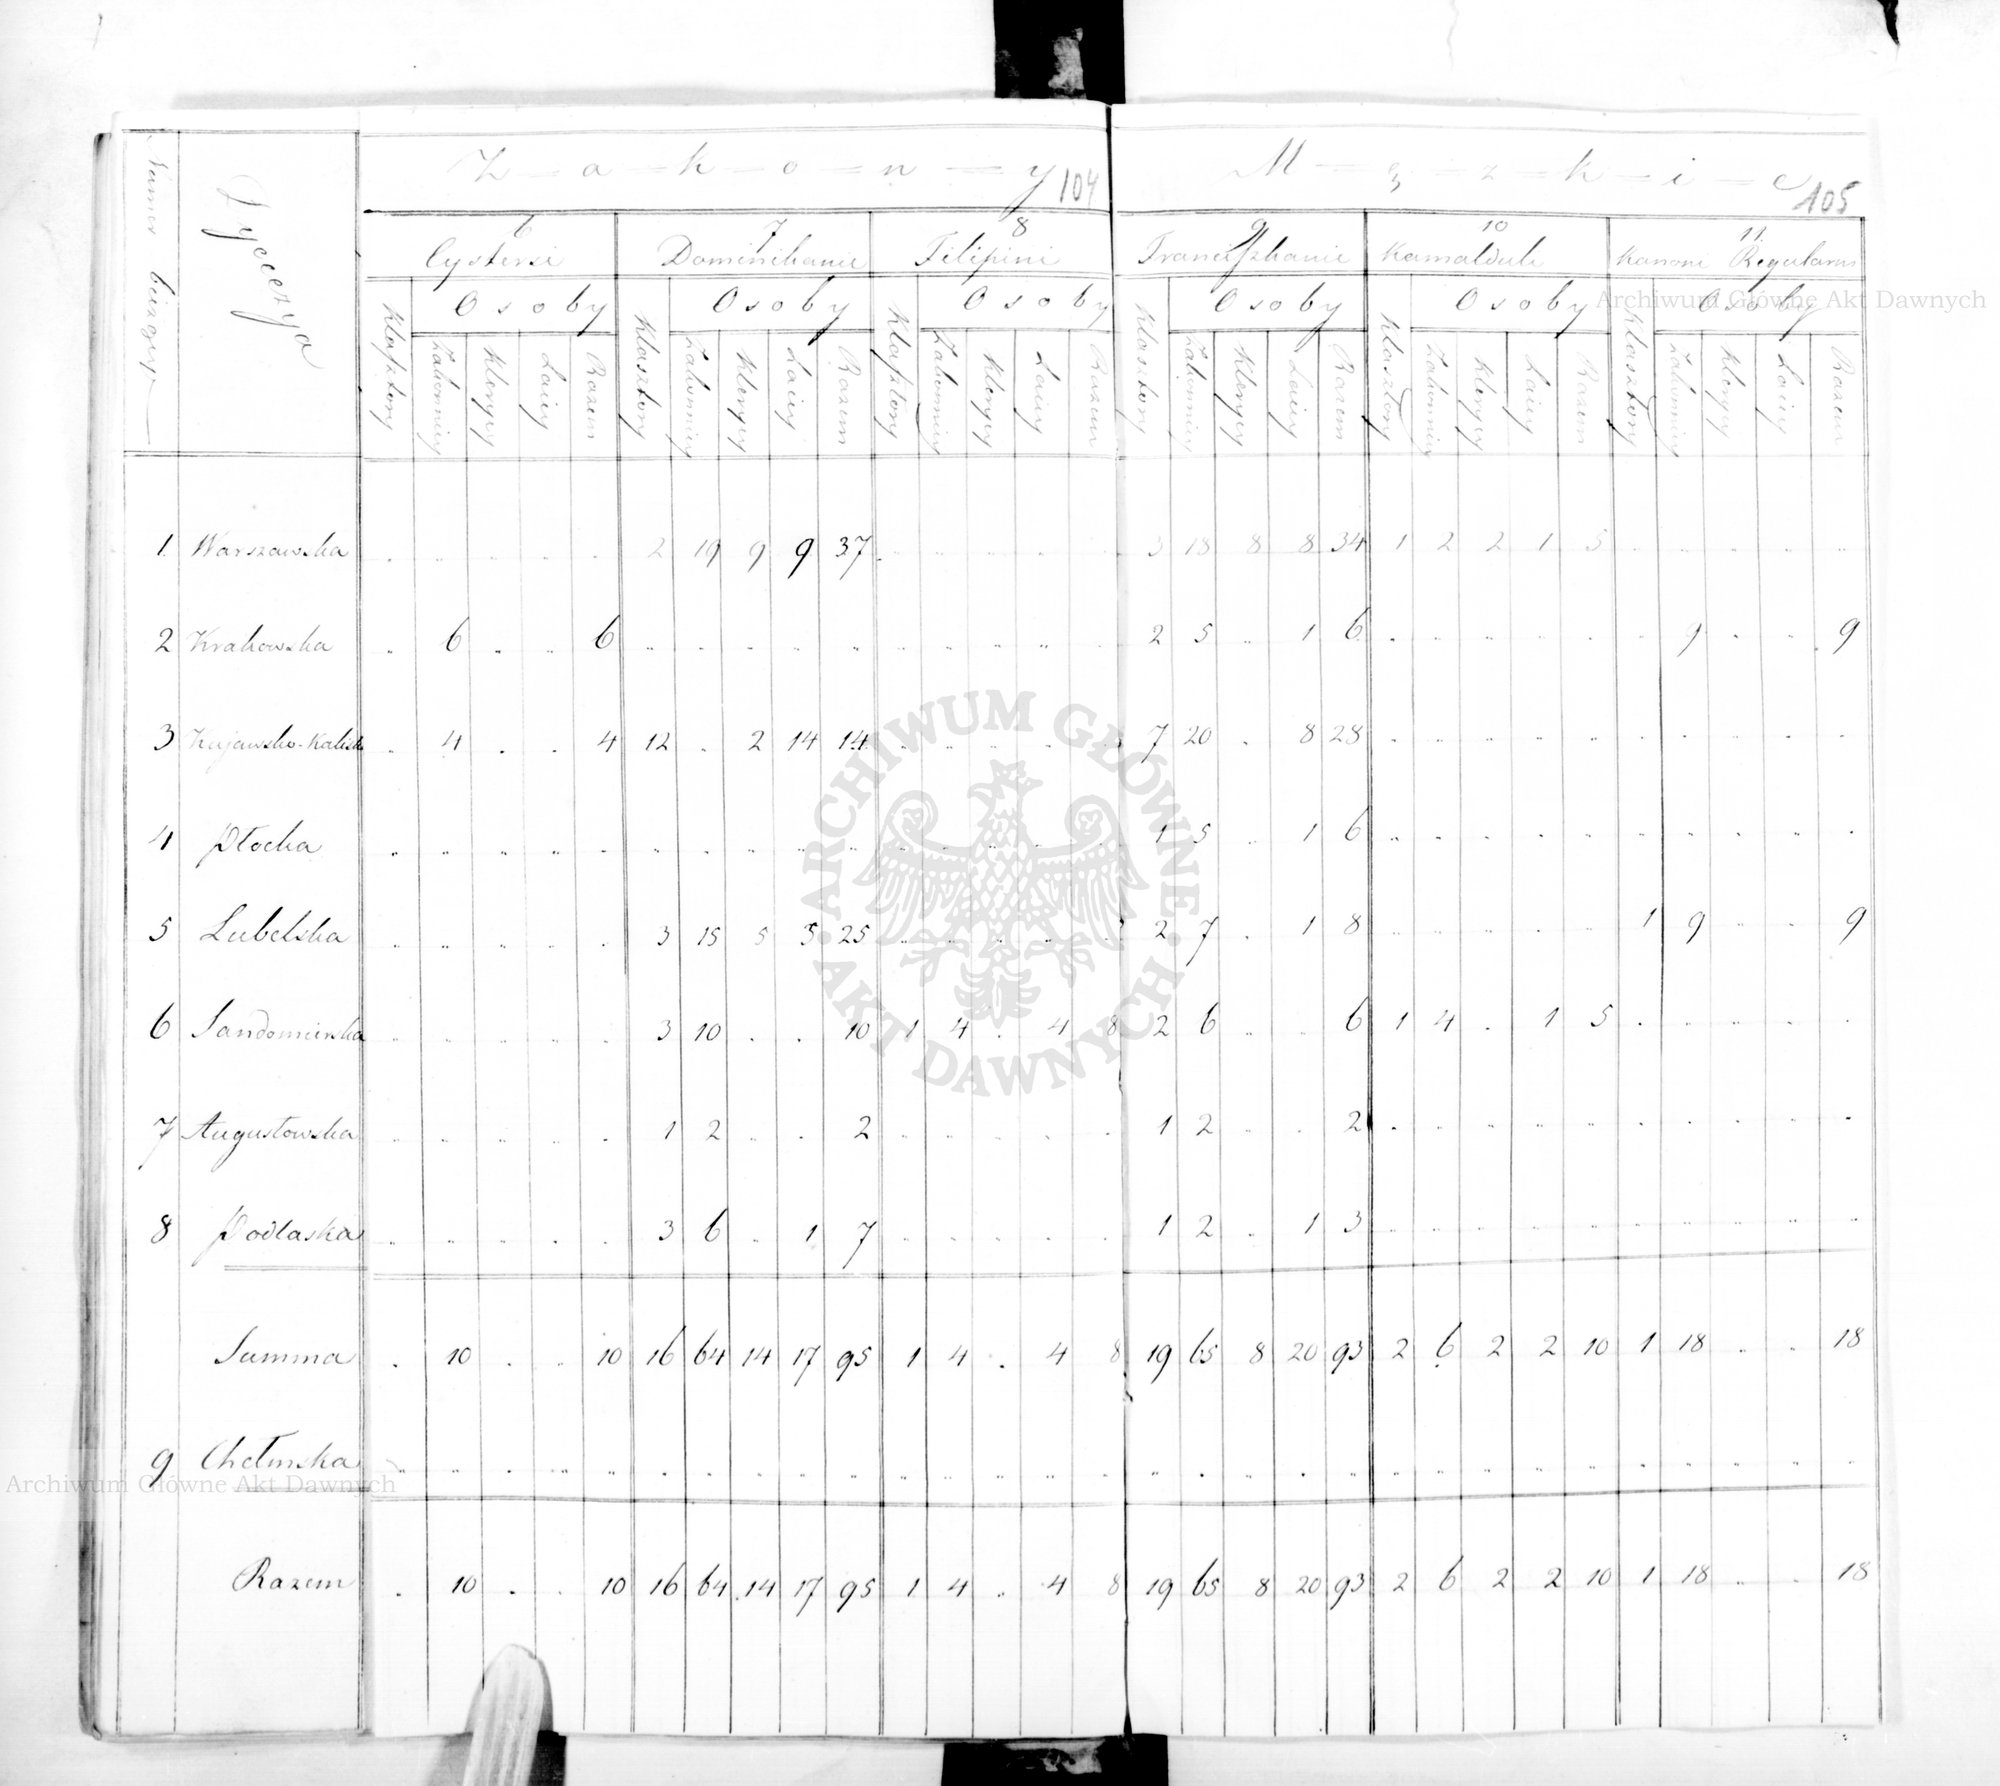 Z-a-k-o-n-y 104 M-ę-z-k-i-e 105
Numer bieżący Dyecezya
6 7 8 9 10 11
Cystersi Dominikanie Filipini Franciszkanie Kamalduli Kanoni Regularni
Osoby Osoby Osoby Osoby Osoby Osoby
Klasztory Zakonnicy Klerycy Laicy Razem Klasztory Zakonnicy Klerycy Laicy Razem Klasztory Zakonnicy Klerycy Laicy Razem Klasztory Zakonnicy Klerycy Laicy Razem Klasztory Zakonnicy Klerycy Laicy Razem Klasztory Zakonnicy Klerycy Laicy Razem
1 Warszawska . . . . . 2 19 9 9 37 . . . . . 3 18 8 8 34 1 2 2 1 5 . . . . .
2 Krakowska . 6 . . 6 . . . . . . . . . . 2 5 . 1 6 . . . . . . 9 . . 9
3 Kujawsko-Kaliska . 4 . . 4 12 . 2 14 14 . . . . . 7 20 . 8 28 . . . . . . . . . .
4 Płocka . . . . . . . . . . . . . . . 1 5 . 1 6 . . . . . . . . . .
5 Lubelska . . . . . 3 15 5 5 25 . . . . . 2 7 . 1 8 . . . . . 1 9 . . 9
6 Sandomierska . . . . . 3 10 . . 10 1 4 . 4 8 2 6 . . 6 1 4 . 1 5 . . . . .
7 Augustowska . . . . . 1 2 . . 2 . . . . . 1 2 . . 2 . . . . . . . . . .
8 Podlaska . . . . . 3 6 . 1 7 . . . . . 1 2 . 1 3 . . . . . . . . . .
Summa . 10 . . 10 16 64 14 17 95 1 4 . 4 8 19 65 8 20 93 2 6 2 2 10 1 18 . . 18
9 Chełmska . . . . . . . . . . . . . . . . . . . . . . . . . . . . . .
Razem . 10 . . 10 16 64 14 17 95 1 4 . 4 8 19 65 8 20 93 2 6 2 2 10 1 18 . . 18
Archiwum Główne Akt Dawnych
ARCHIWUM GŁÓWNE AKT DAWNYCH
Archiwum Główne Akt Dawnych